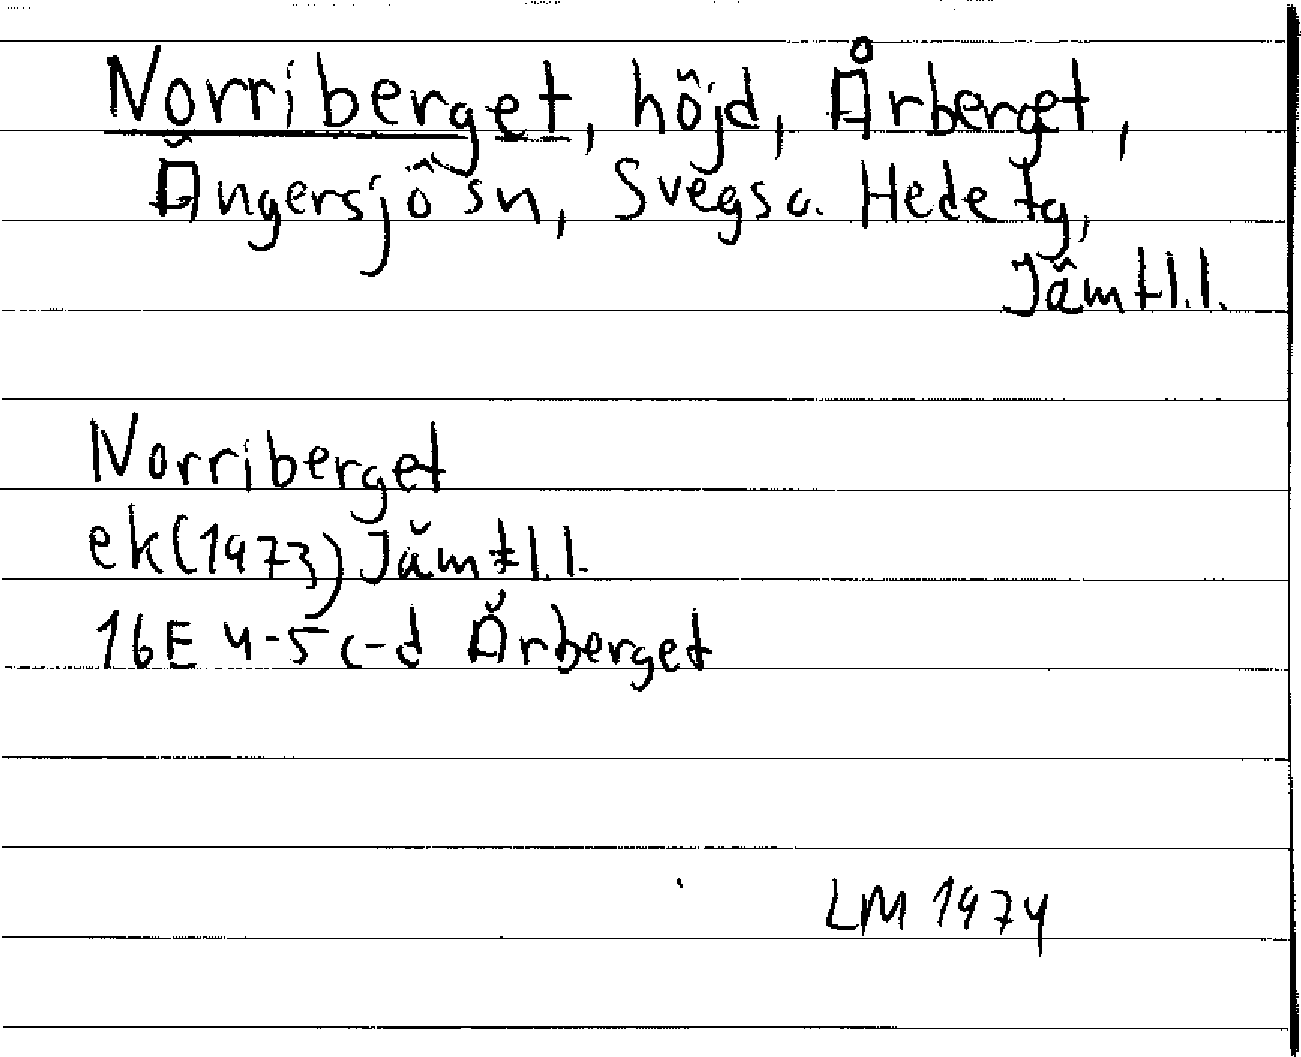 Norriberget, höjd, Årberget,
Ängersjö sn, Svegs o. Hede tg,
Jämtl.l.
Norriberget
ek(1973) Jämtl.l.
16E 4-5 c-d Årberget
LM 1974